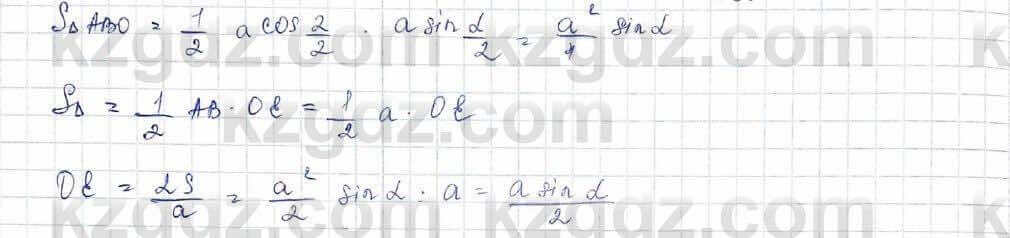 S△ABO = 1/2 a cos 2/2 · a sin α/2 = a²/4 sin α
S△ = 1/2 AB · OE = 1/2 a · OE
OE = 2S/a = a²/2 sin α : a = a sin α/2
kzgdz.com